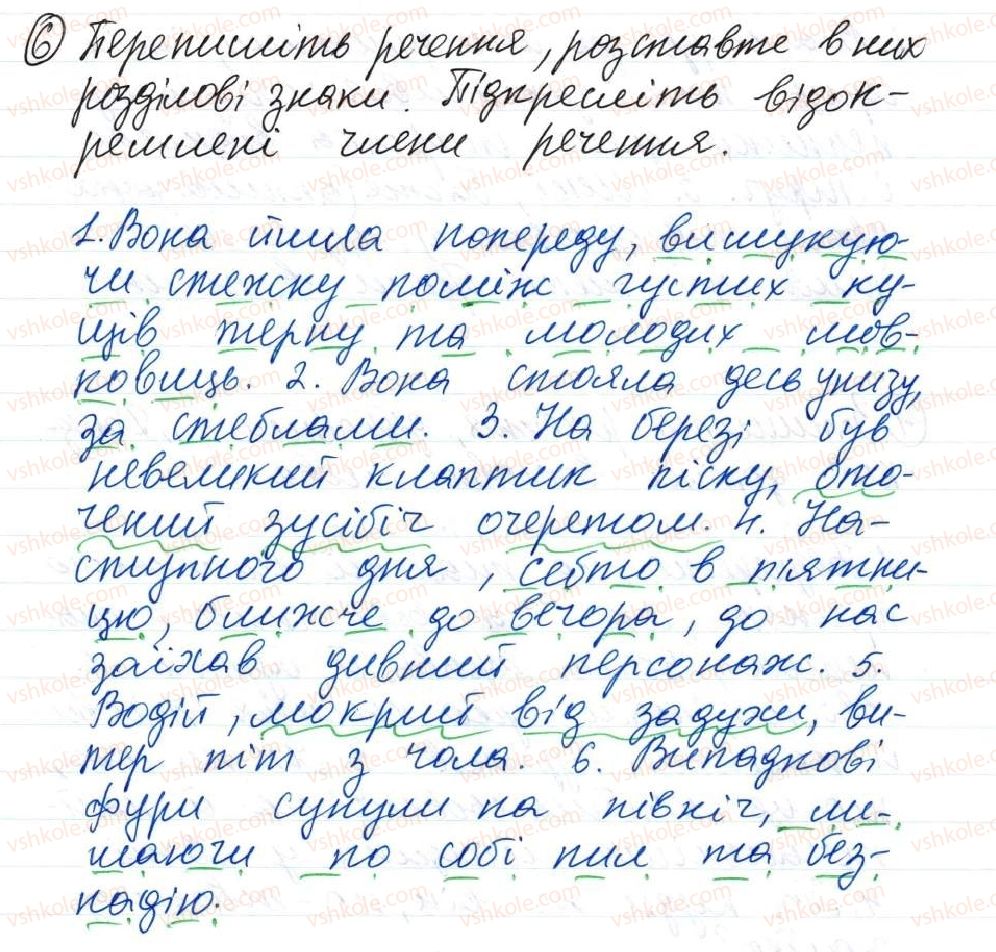 6 Перепишіть речення, розставте в них
розділові знаки. Підкресліть відок-
ремлені члени речення.
1. Вона йшла попереду, вишукую-
чи стежку поміж густих ку-
щів терну та молодих шов-
ковиць. 2. Вона стояла десь унизу,
за стеблами. 3. На березі був
невеликий клаптик піску, ото-
чений зусібіч очеретом. 4. На-
ступного дня, себто в п'ятни-
цю, ближче до вечора, до нас
заїхав дивний персонаж. 5.
Водій, мокрий від задухи, ви-
тер піт з чола. 6. Випадкові
фури сунули на північ, ли-
шаючи по собі пил та без-
надію.